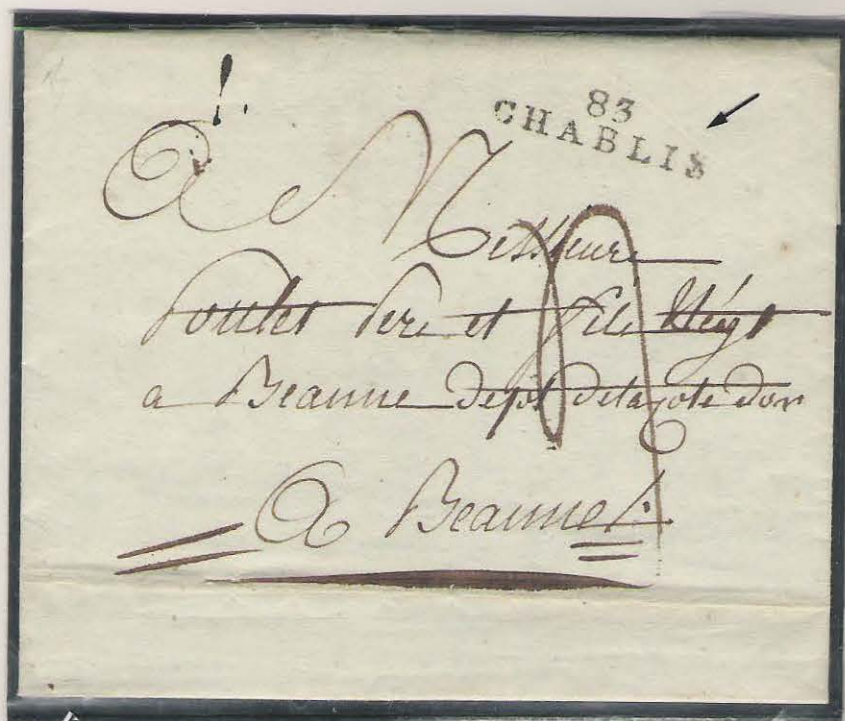 83
CHABLIS
A Messieurs
Poulet Pere et fils Négt
a Beaune Dept de la Cote Dor
A Beaune